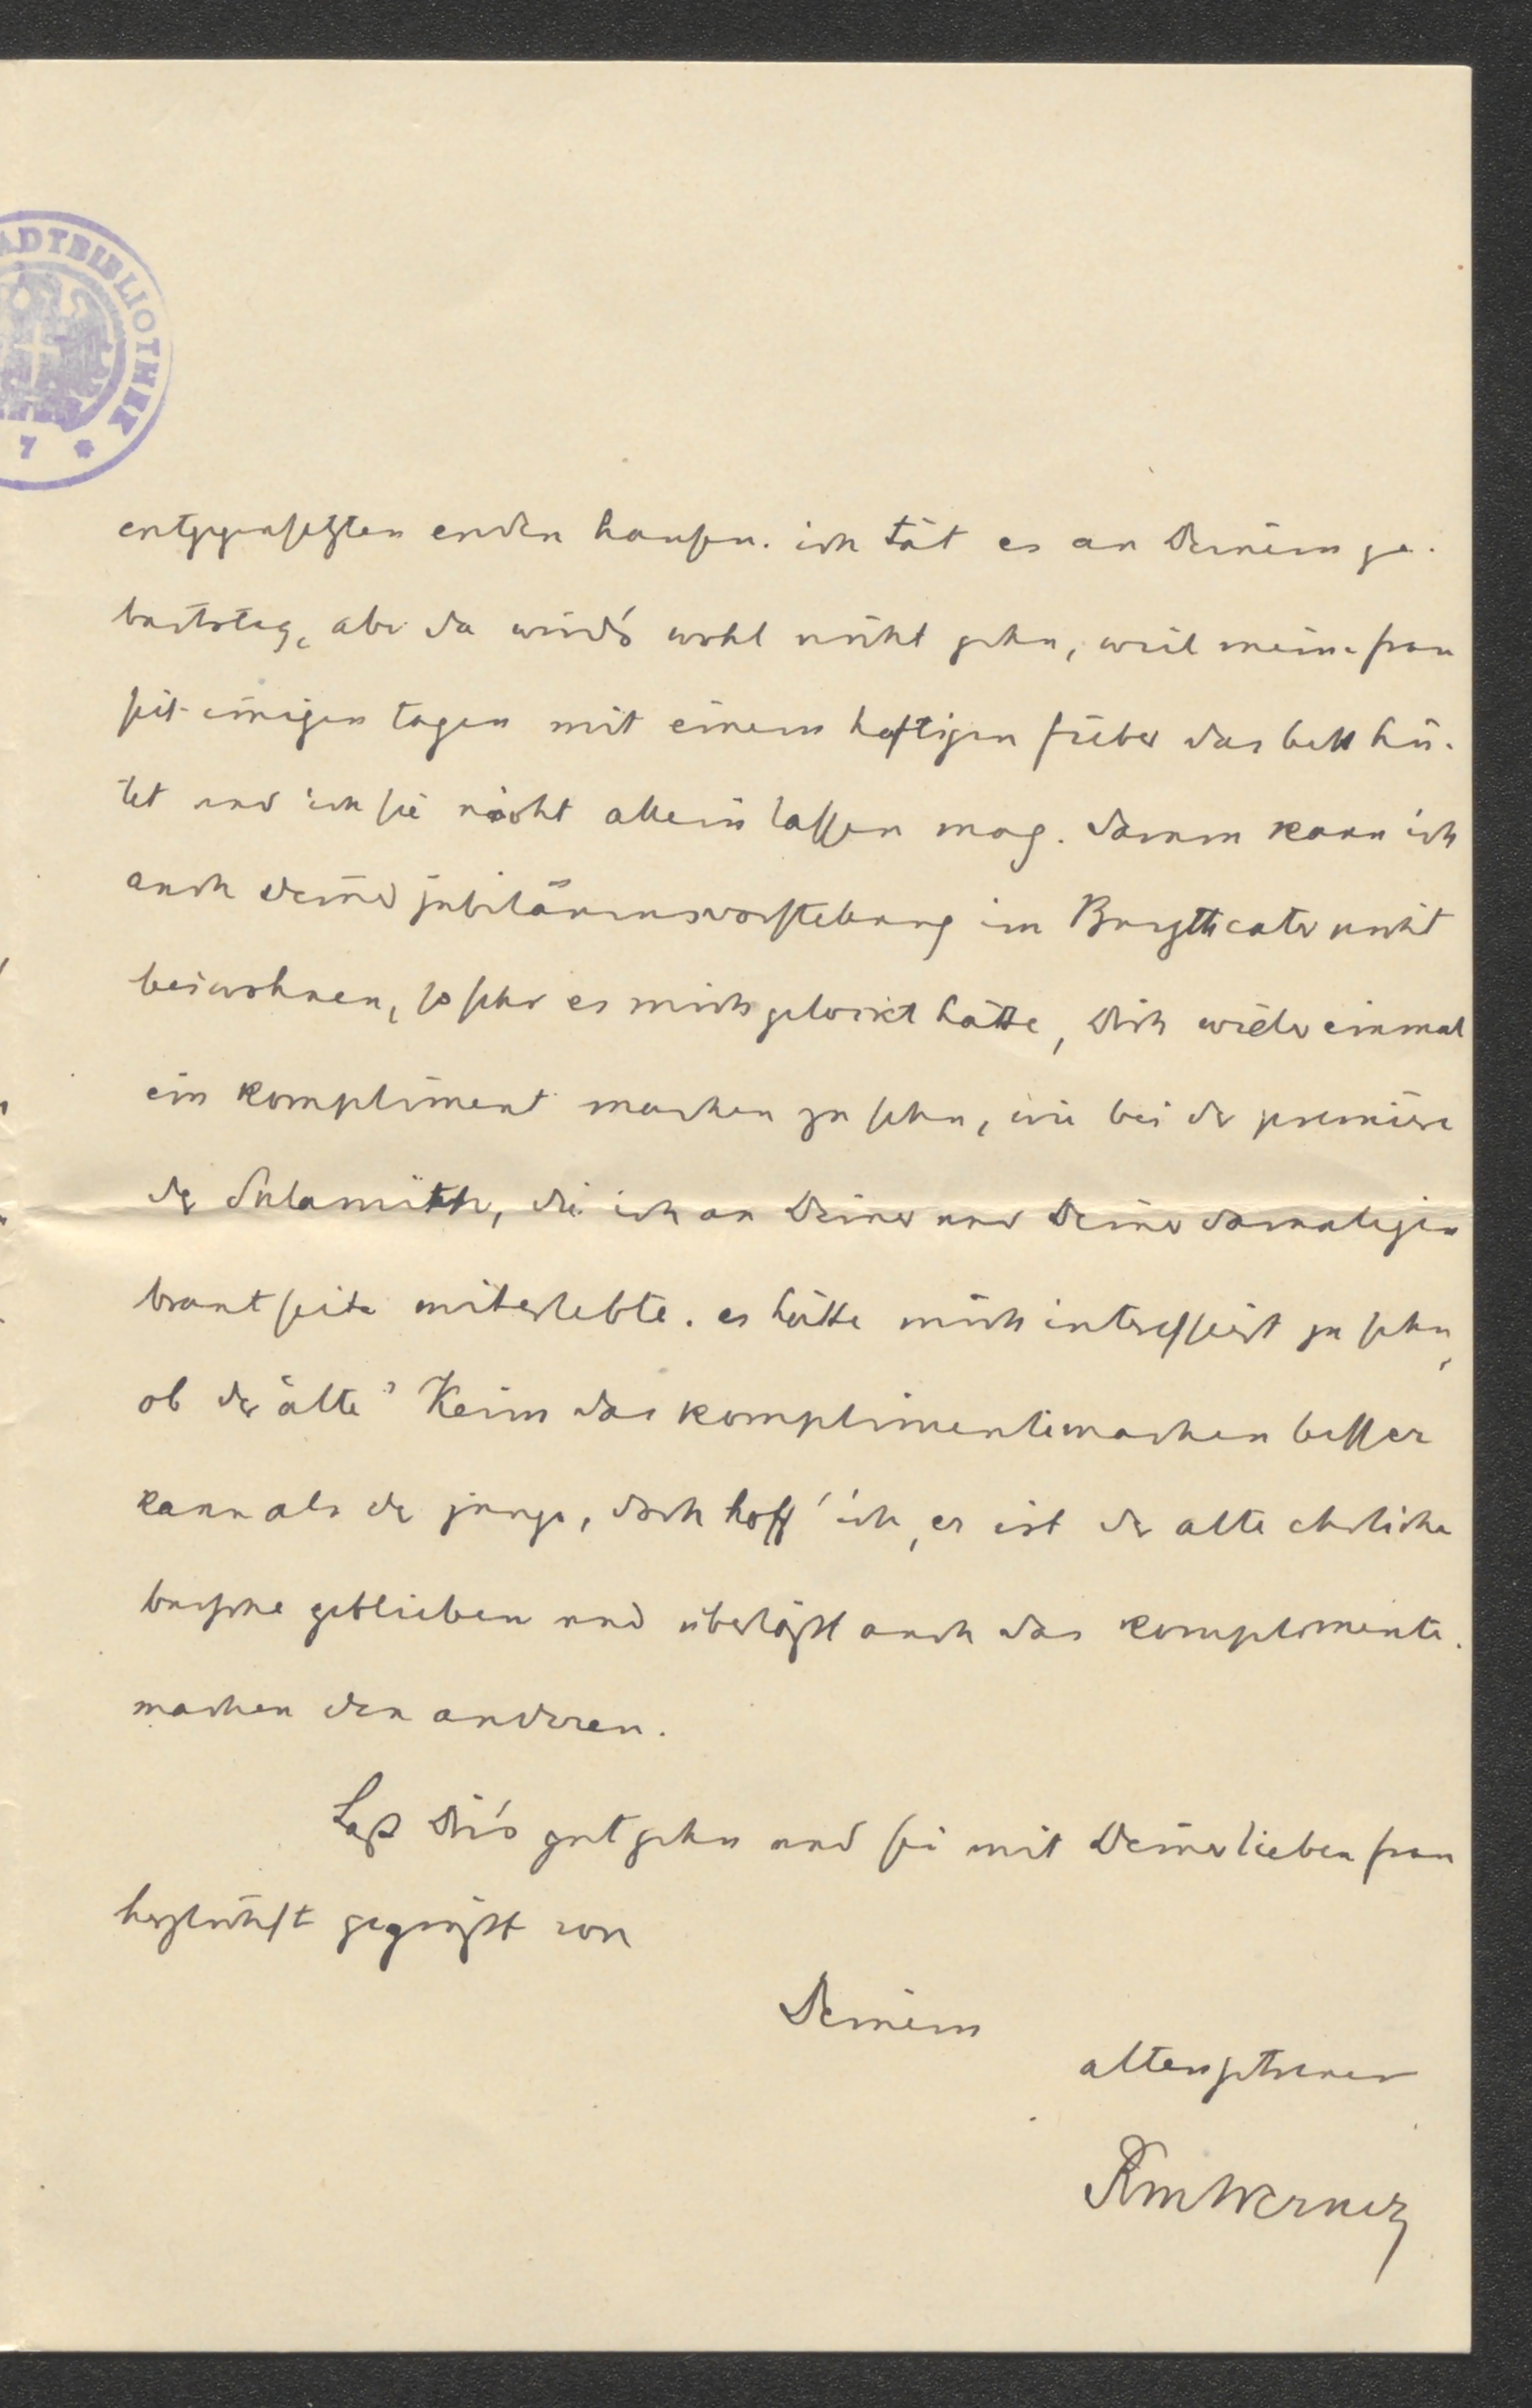 ADTBIBLIOTHEK
7 *
entgegensetzten enden hausen. ich tät es an Deinem ge-
burtstag, aber da wird's wohl nicht gehn, weil meine frau
seit einigen tagen mit einem heftigen fieber das bett hü-
tet und ich sie nicht allein lassen mag. darum kann ich
auch Deiner jubiläumsvorstellung im Burgtheater nicht
beiwohnen, so sehr es mich gelockt hätte, Dich wieder einmal
ein kompliment machen zu sehn, wie bei der premiere
der Sulamith, die ich an Deiner und Deiner damaligen
braut seite miterlebte. es hätte mich interessiert zu sehn,
ob der „alte" Keim das komplimentemachen besser
kann als der junge, doch hoff' ich, er ist der alte ehrliche
bursche geblieben und überläßt auch das komplimente-
machen den anderen.
Laß Dir's gut gehn und sei mit Deiner lieben frau
herzlichst gegrüßt von
Deinem
alten getreuen
RMWerner